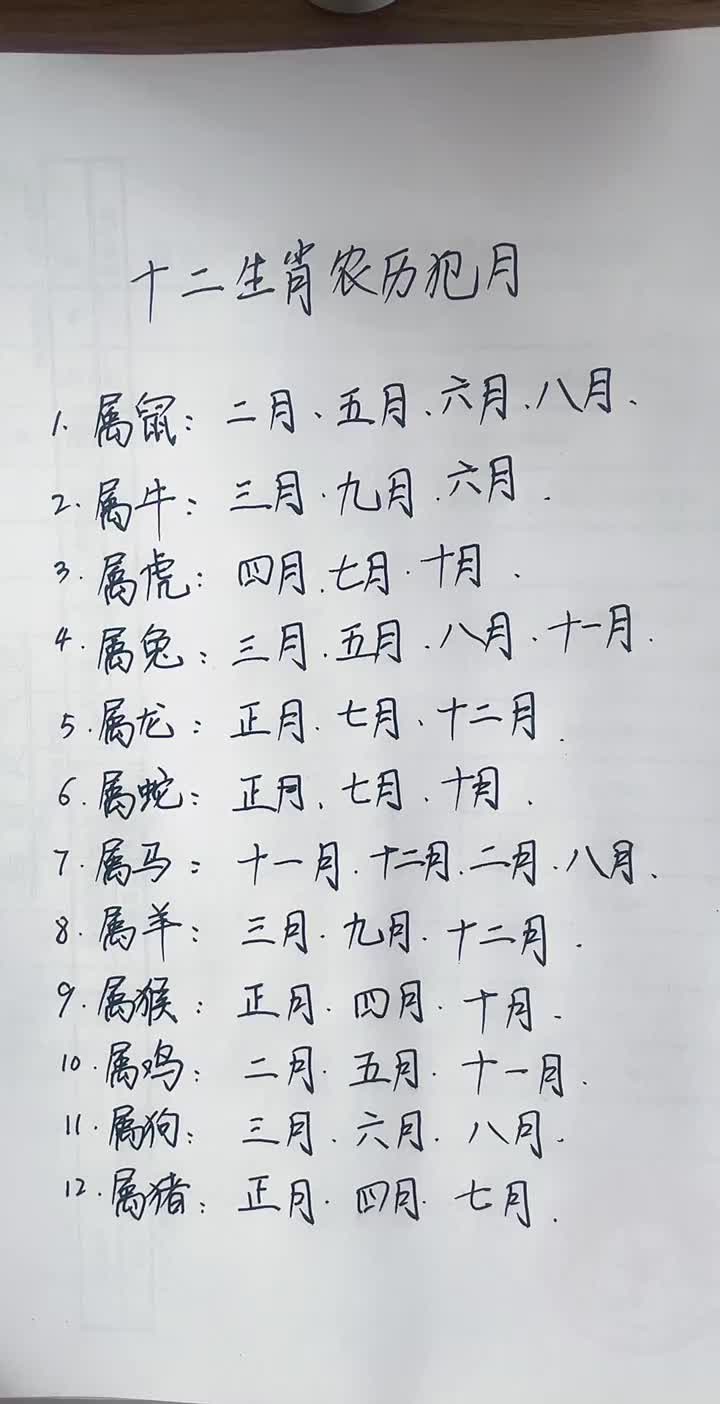 十二生肖农历犯月
1. 属鼠：二月、五月、六月、八月、
2. 属牛：三月．九月．六月．
3. 属虎：四月、七月．十月．
4. 属兔：三月．五月．八月．十一月．
5. 属龙：正月．七月、十二月．
6. 属蛇：正月、七月．十月．
7. 属马：十一月．十二月．二月．八月、
8. 属羊：三月．九月．十二月．
9. 属猴：正月．四月．十月．
10. 属鸡：二月．五月．十一月．
11. 属狗：三月．六月．八月．
12. 属猪：正月．四月．七月．